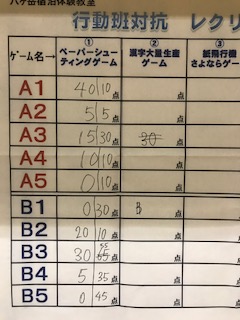 八ヶ岳宿泊体験教室
行動班対抗 レクリ
ゲーム名→ ① ペーパーシューティングゲーム ② 漢字大量生産ゲーム ③ 紙飛行機さよならゲーム
A1 40 10点 点
A2 5 5点 点
A3 15 30点 30 点
A4 10 10点 点
A5 0 10点 点
B1 0 30点 B 点
B2 20 10点 点
B3 30 点 点
B4 5 35点 点
B5 0 45点 点